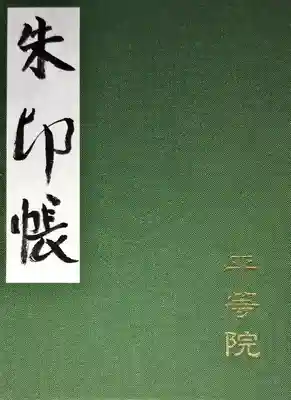 朱印帳
平等院